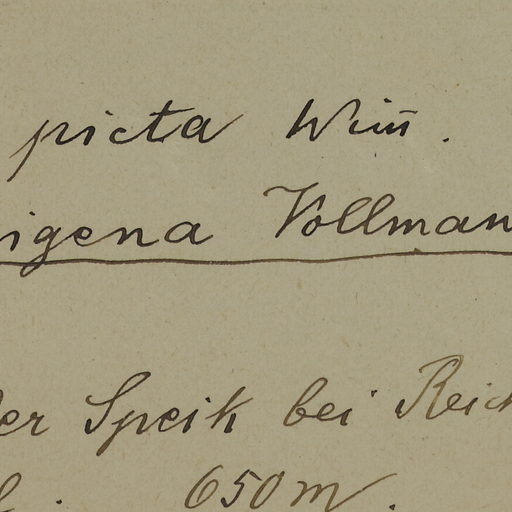 picta Wim̄.
igena Vollman
er Speik bei Reich
650 m.